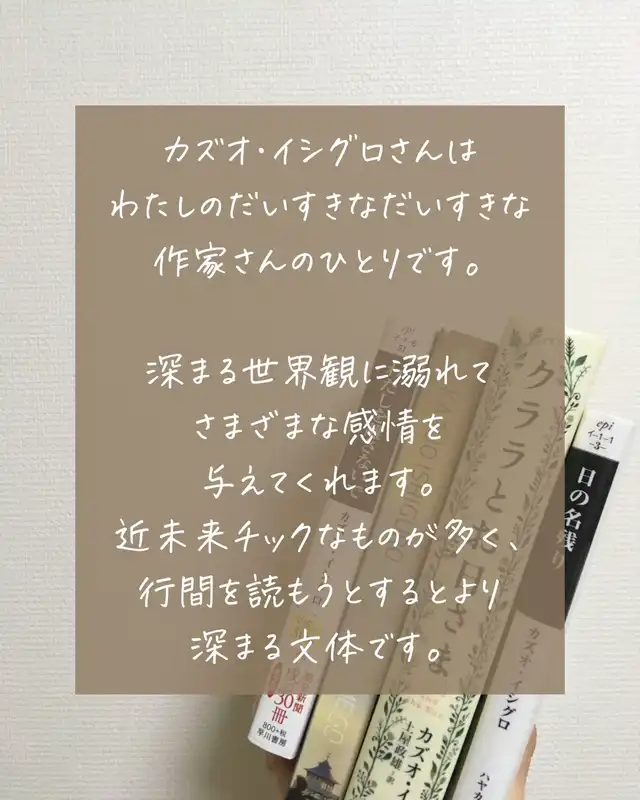 カズオ・イシグロさんは
わたしのだいすきなだいすきな
作家さんのひとりです。
深まる世界観に溺れて
さまざまな感情を
与えてくれます。
近未来チックなものが多く、
行間を読もうとするとより
深まる文体です。
わたしを離さないで
カズオ・イシグロ
30冊
800+税
早川書房
クララとお日さま
カズオ・イ
土屋政雄 訳
epi
イ-1-1
日の名残り
カズオ・イシグロ
ハヤカ